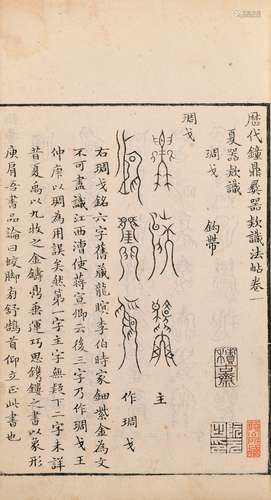 歷代鐘鼎彝器款識法帖卷一
夏器款識
琱戈 鈎帶
琱戈
主
作琱戈
右琱戈銘六字舊藏龍眠李伯時家鈿紫金為文
不可盡識江西漕使蔣宣卿云後三字乃作琱戈王
仲庚以琱為用誤矣然第一字主字無疑下二字未詳
昔夏禹以九牧之金鑄鼎垂運巧思鐫鏤之書以象形
庾肩吾書品論曰蚊脚旁舒鵠首仰立正此書也